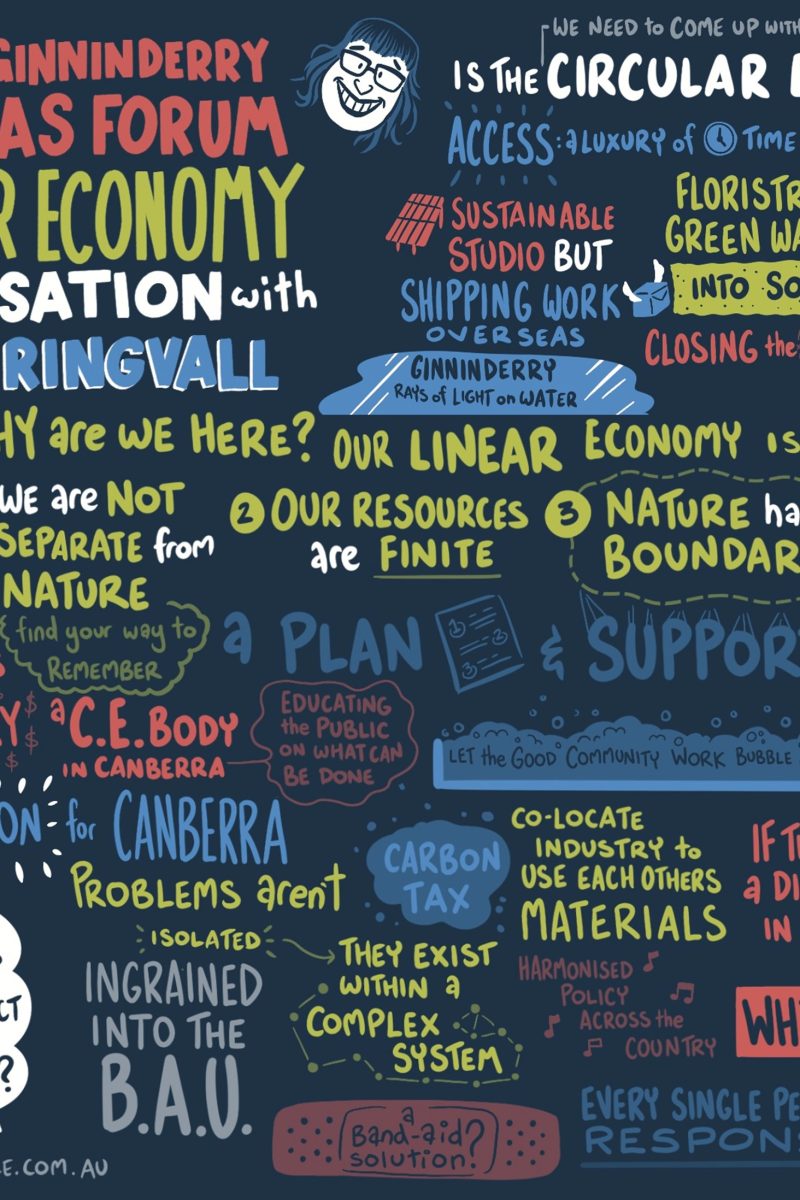 GINNINDERRY
AS FORUM
R ECONOMY
SATION with
RINGVALL
WE NEED to COME UP WITH
IS THE CIRCULAR
ACCESS: a LUXURY of TIME
SUSTAINABLE
STUDIO BUT
SHIPPING WORK
OVERSEAS
FLORISTR
GREEN WA
INTO SO
CLOSING the
GINNINDERRY
RAYS of LIGHT on WATER
HY are WE HERE?
OUR LINEAR ECONOMY IS
WE are NOT
SEPARATE from
NATURE
find your way to
REMEMBER
2 OUR RESOURCES
are FINITE
3 NATURE ha
BOUNDAR
a PLAN & SUPPOR
Y $
$
$
a C.E. BODY
IN CANBERRA
EDUCATING
the PUBLIC
ON WHAT CAN
BE DONE
LET the GOOD COMMUNITY WORK BUBBLE
ON for CANBERRA
PROBLEMS aren't
ISOLATED
THEY EXIST
WITHIN a
COMPLEX
SYSTEM
CARBON
TAX
CO-LOCATE
INDUSTRY to
USE EACH OTHERS
MATERIALS
IF T
a DI
IN
INGRAINED
INTO THE
B.A.U.
HARMONISED
POLICY
ACROSS the
COUNTRY
WH
CT
?
a
Band-aid?
solution!
EVERY SINGLE PE
RESPONS
E.COM.AU